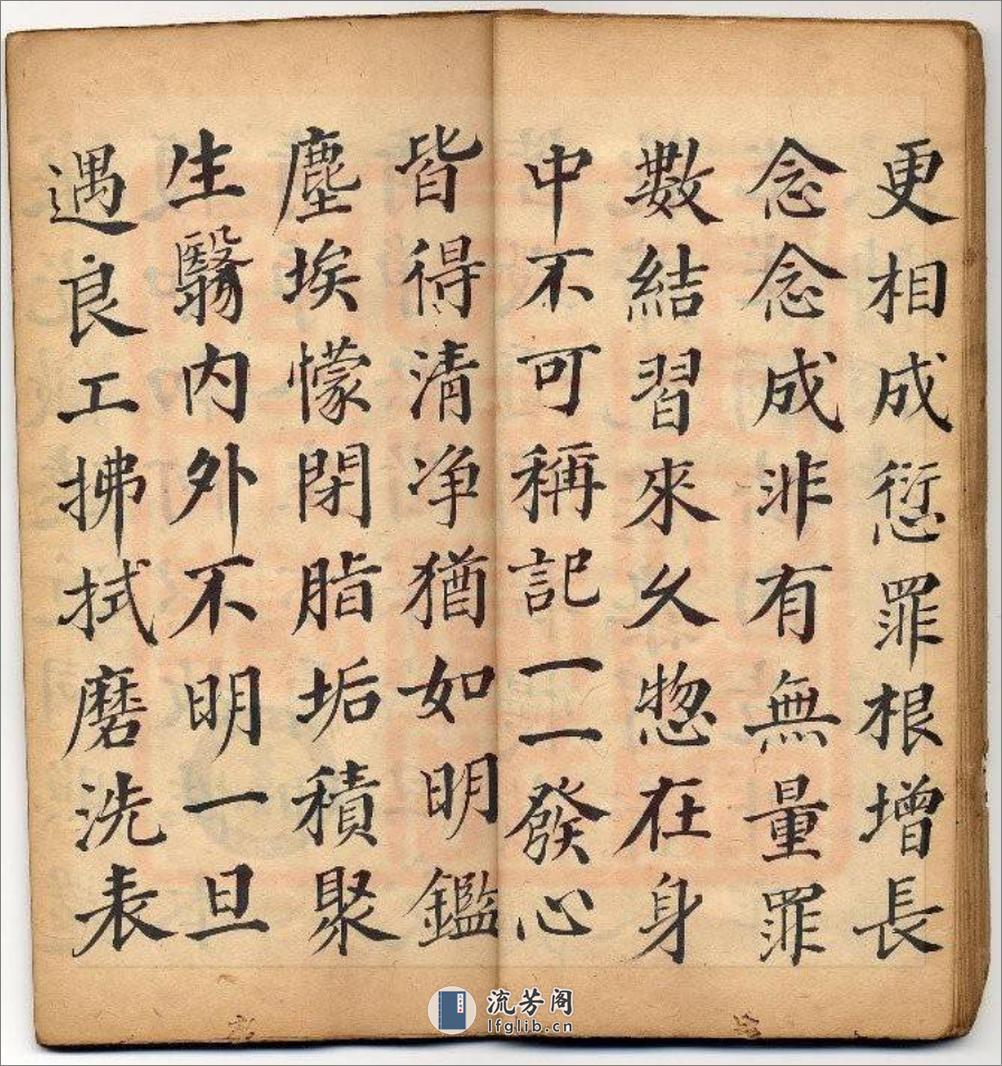 更相成愆罪根增長
念念成非有無量罪
數結習來久惣在身
中不可稱記一一發心
皆得清净猶如明鑑
塵埃懞閉脂垢積聚
生翳内外不明一旦
遇良工拂拭磨洗表
流芳阁
lfglib.cn